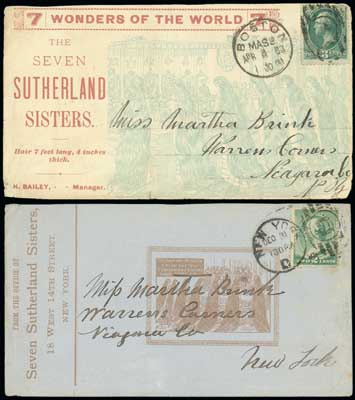 7 WONDERS OF THE WORLD 7
THE
SEVEN
SUTHERLAND
SISTERS.
Hair 7 feet long, 4 inches
thick.
H. BAILEY, - - Manager.
BOSTON
MASS
APR
83
Miss Martha Brink
Warrens Corners
Niagara Co
N.Y.
FROM THE OFFICE OF
Seven Sutherland Sisters,
18 WEST 14TH STREET,
NEW YORK.
NEW YO
DEC
D
Miss Martha Brink
Warrens Corners
Niagara Co
New York